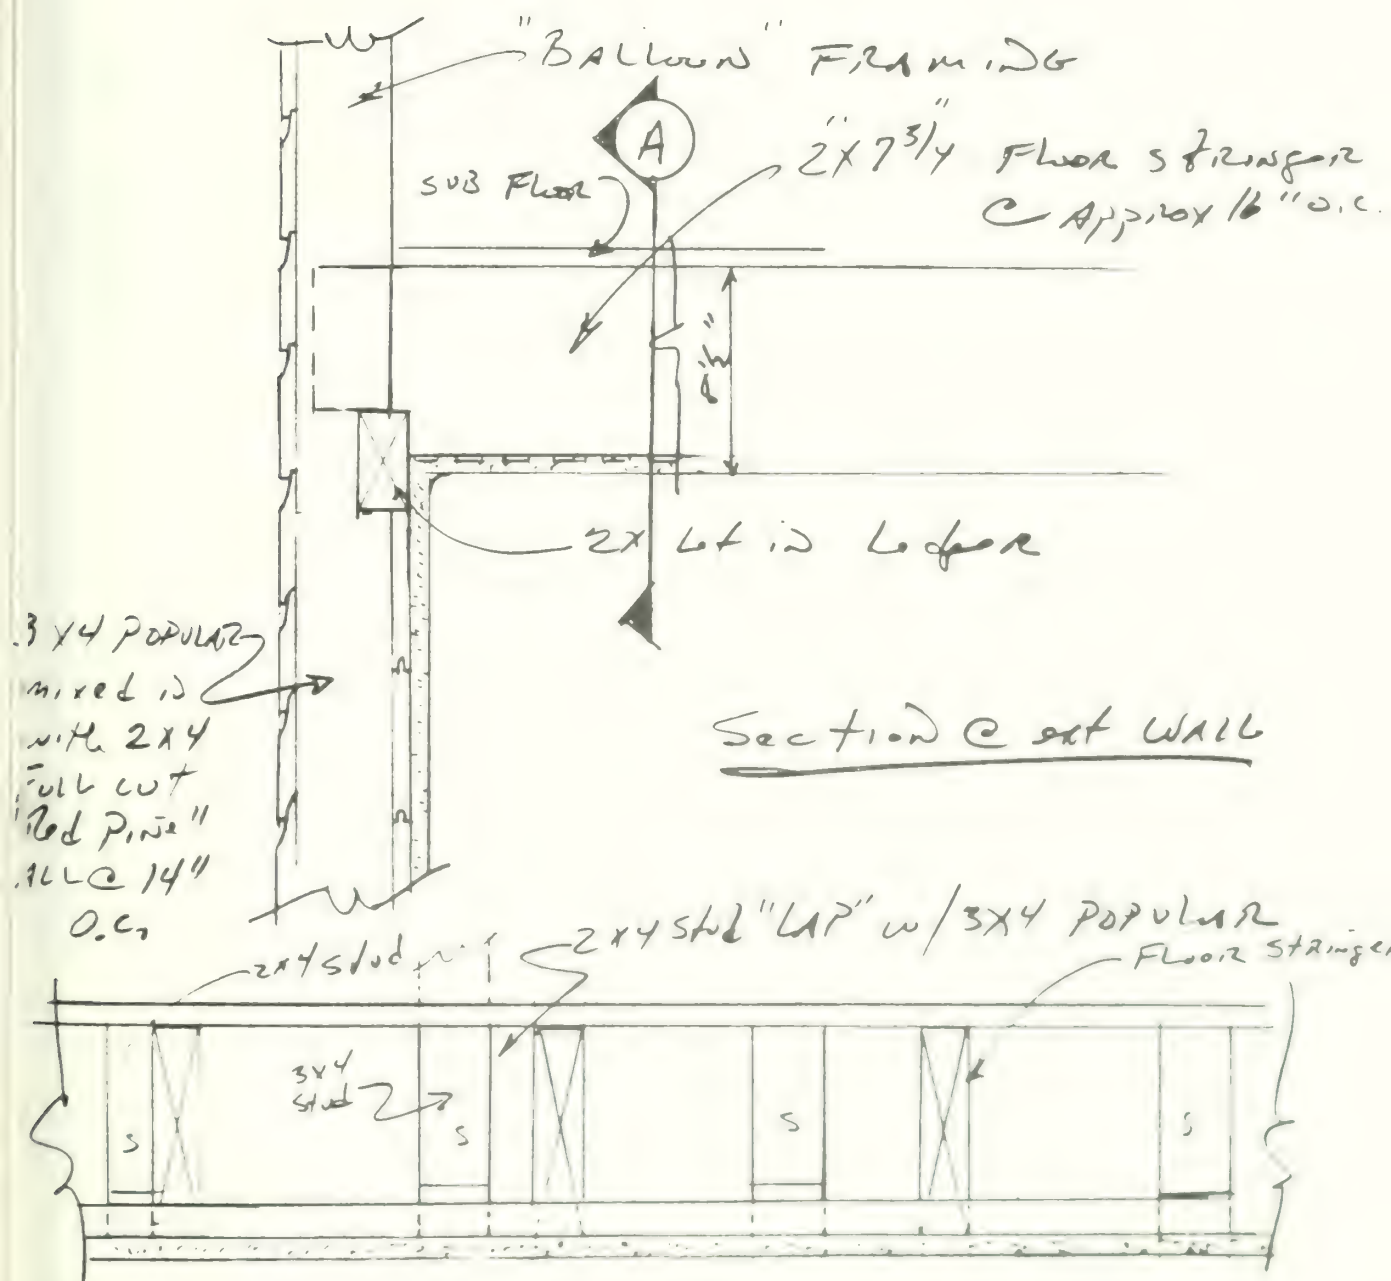 "BALLOON" FRAMING
A
2" X 7 3/4" FLOOR STRINGER
@ APPROX 16" O.C.
SUB FLOOR
2X Let in Ledger
3 X 4 POPULAR
mixed in
with 2X4
FULL CUT
"Red Pine"
ALL @ 14"
O.C.
Section @ ext WALL
2X4 Stud "LAP" w/ 3X4 POPULAR
2X4 Stud
FLOOR STRINGER
3X4
Stud
S
S
S
S